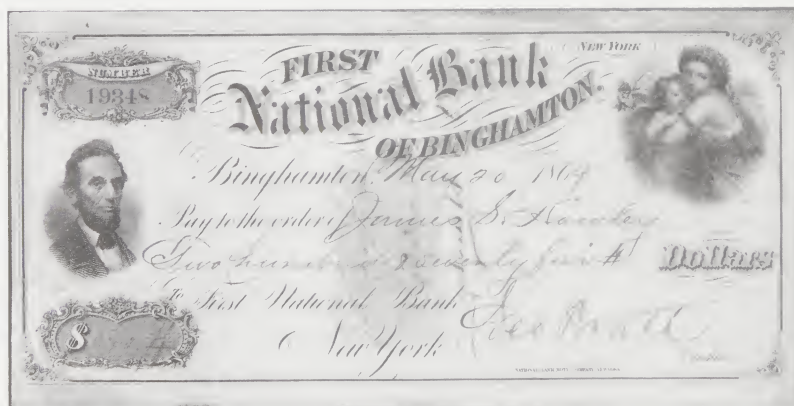 NUMBER
19348
FIRST
National Bank
OF BINGHAMTON.
NEW YORK
Binghamton, May 20 186
Pay to the order of James S. Hawley
Two hundred & seventy five
Dollars
To First National Bank
New York
Geo Pratt
$